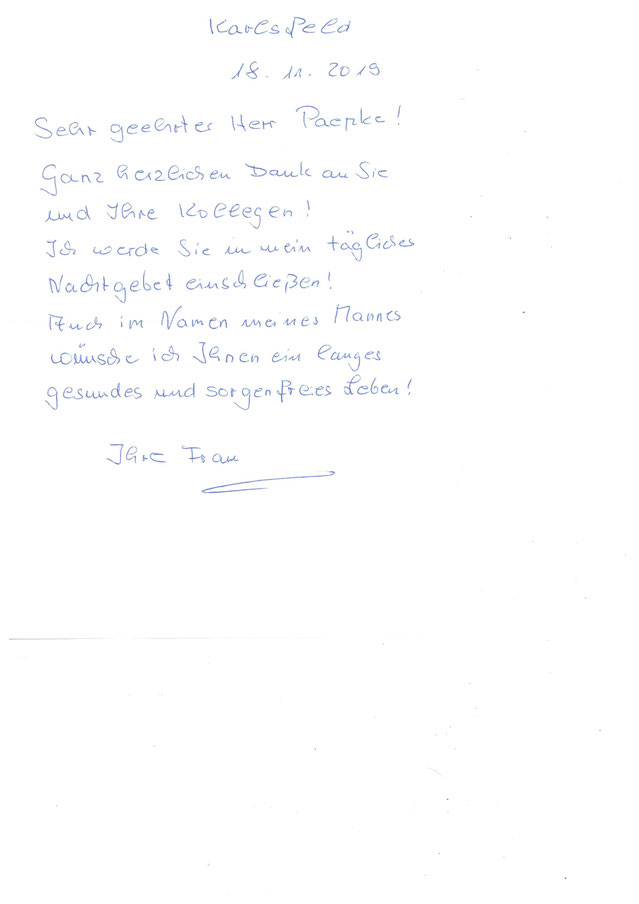 Karlsfeld
18. 11. 2019
Sehr geehrter Herr Paepke!
Ganz herzlichen Dank an Sie
und Ihre Kollegen!
Ich werde Sie in mein tägliches
Nachtgebet einschließen!
Auch im Namen meines Mannes
wünsche ich Ihnen ein langes
gesundes und sorgenfreies Leben!
Ihre Frau